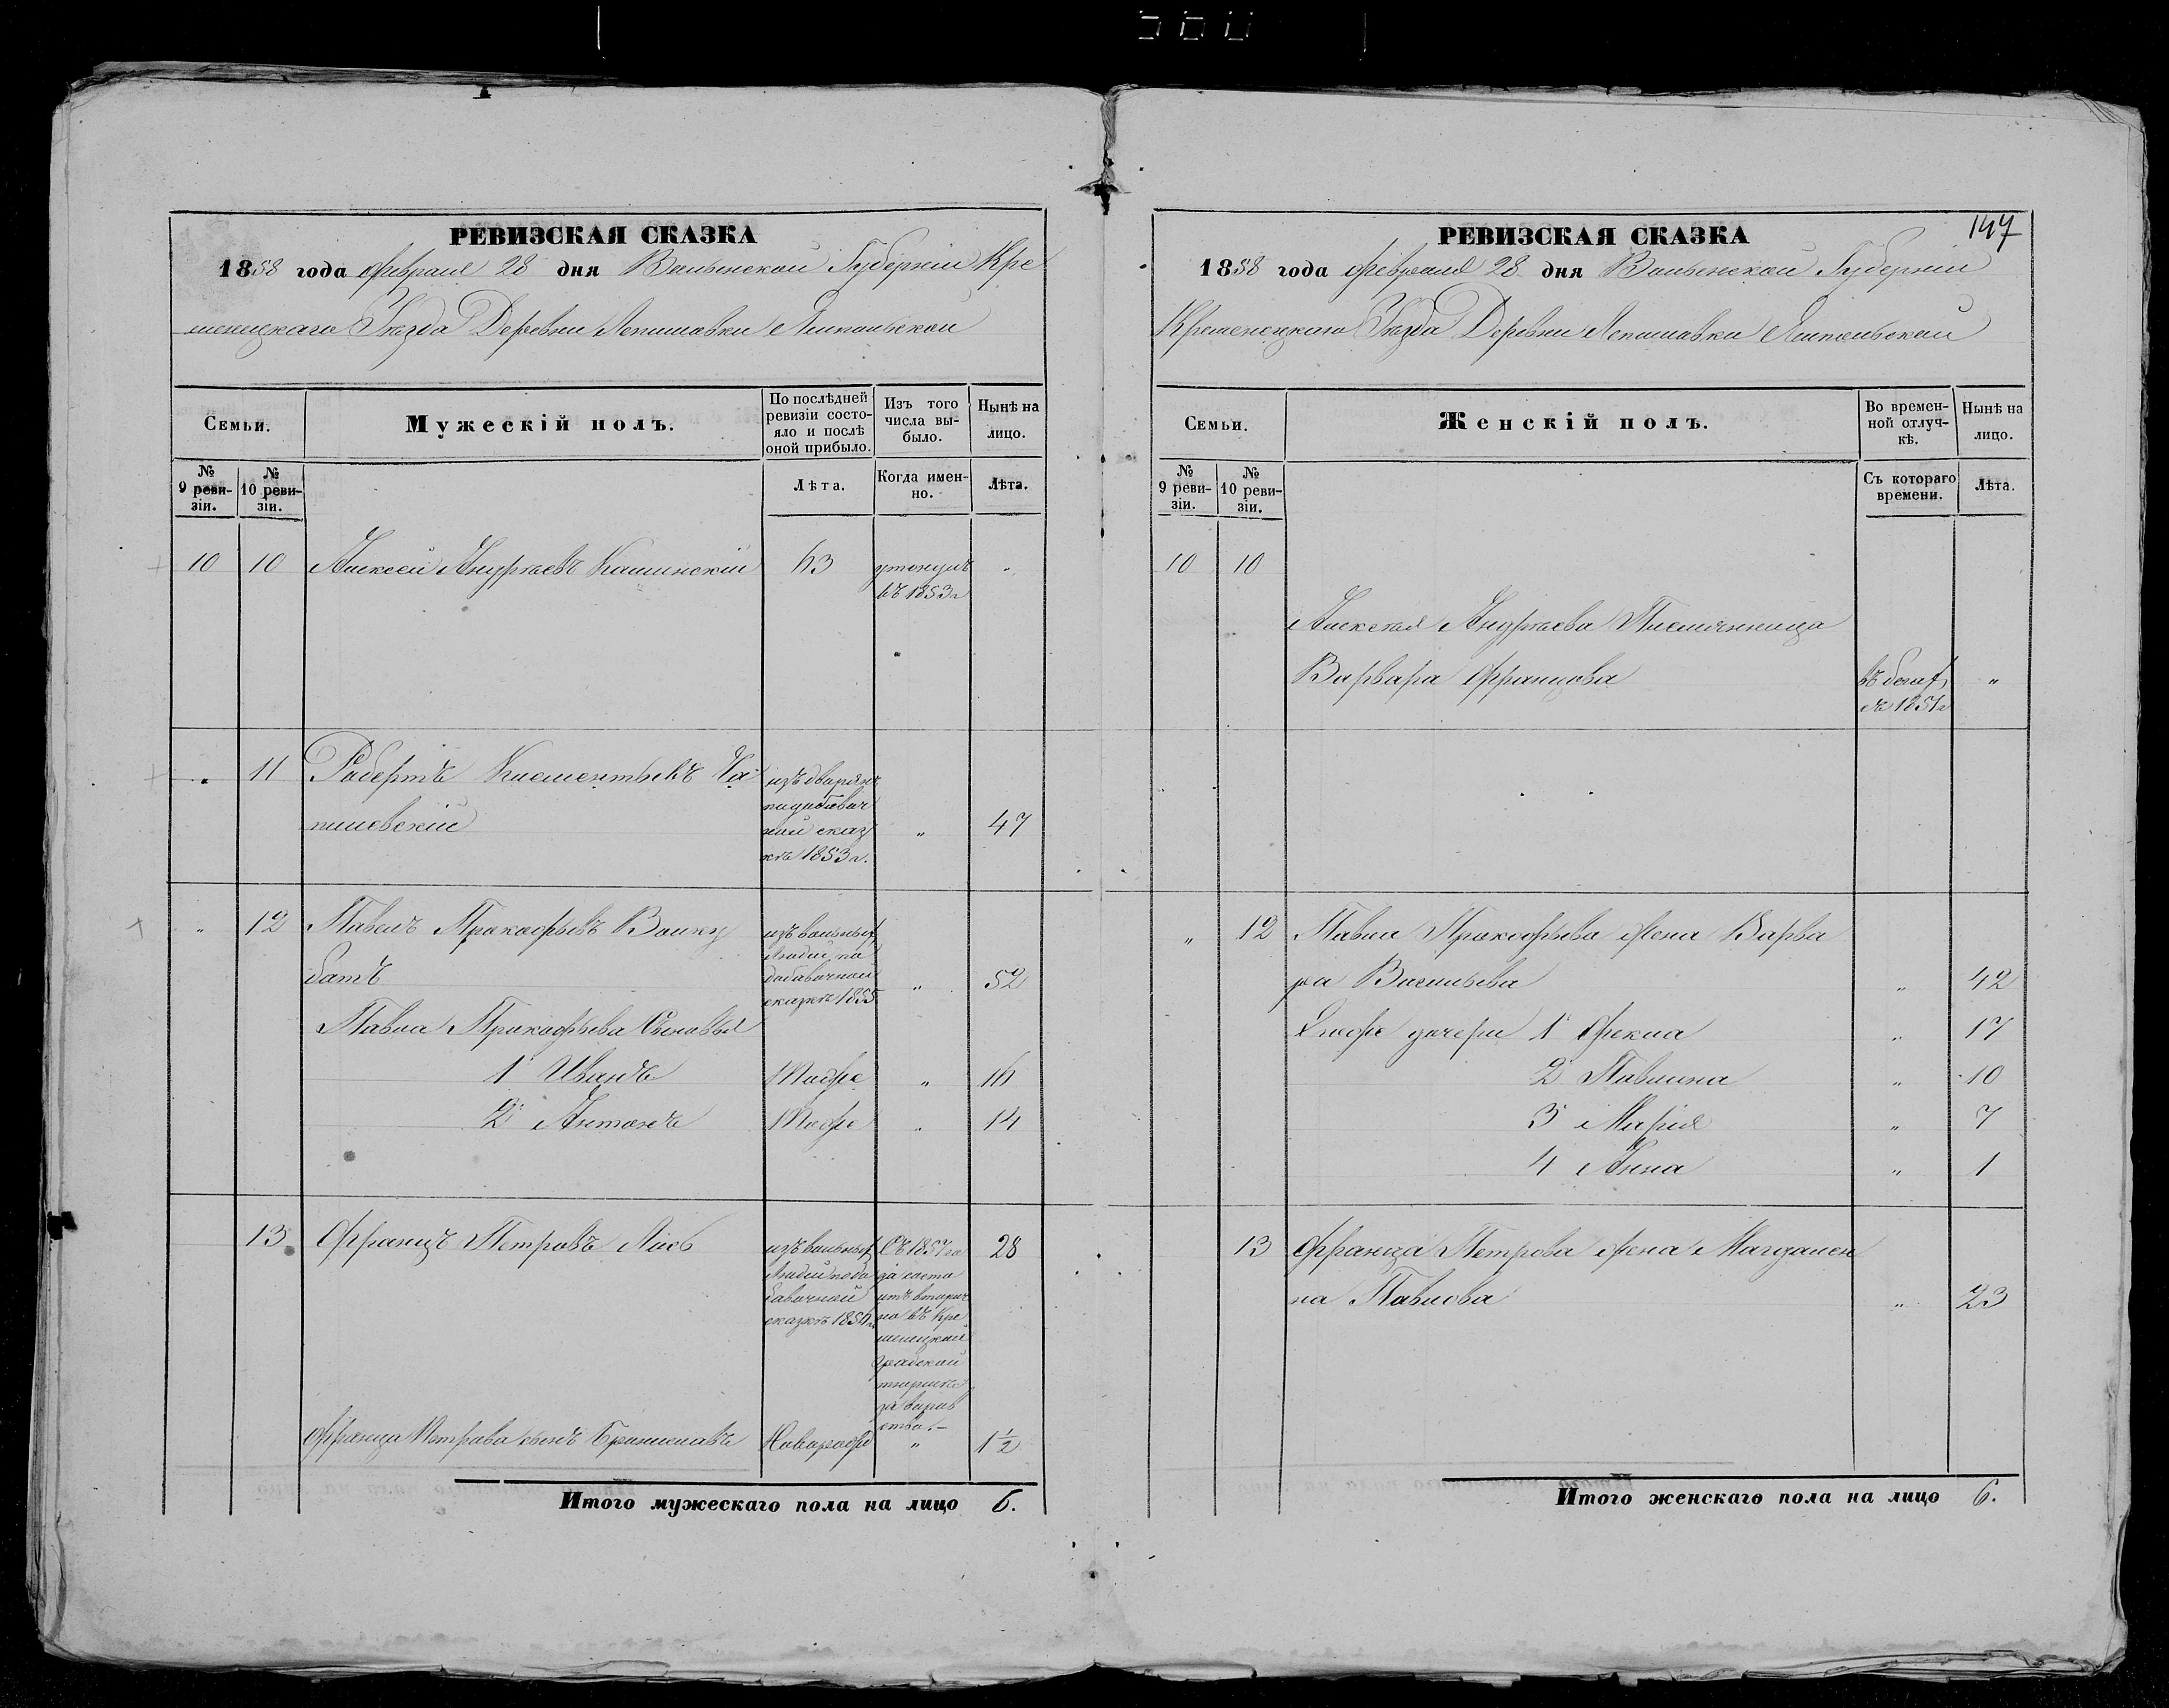 РЕВИЗСКАЯ СКАЗКА
1858 года февраля 28 дня Волынской Губернiи Кре
менецкаго Уѣзда Деревни Лепашовки Ямпольской
Семьи.
Мужескiй полъ.
По послѣдней ревизiи состо-
яло и послѣ оной прибыло.
Изъ того числа вы-
было.
Нынѣ на лицо.
№ 9 реви-
зiи.
№ 10 реви-
зiи.
Лѣта.
Когда имен-
но.
Лѣта.
10 10 Алексей Андреевъ Калинскiй 63 утонулъ „
въ 1853г
„ 11 Робертъ Клементьевъ изъ дворянъ
подобавоч
ной сказ „ 47
кѣ 1853г.
„ 12 Павелъ Прокофьевъ Волку изъ вольныхъ
батъ людей по
добавочной „ 52
сказкѣ 1855
Павла Прокофьева сыновья
1й Иванъ Тоже „ 16
2й Антонъ Тоже „ 14
13 Францъ Петровъ изъ вольныхъ Съ 1857го 28
людей подо
бавочной
сказкѣ 1856г. но въ Кре
менецкой
градской
тюрьмѣ
за воров
ство.–
Франца Петрова сынъ Брониславъ Новорож „ 1 1/2
Итого мужескаго пола на лицо 6.
147
РЕВИЗСКАЯ СКАЗКА
1858 года февраля 28 дня Волынской Губернiи
Кременецкаго Уѣзда Деревни Лепашовки Ямпольской
Семьи.
Женскiй полъ.
Во времен-
ной отлуч-
кѣ.
Нынѣ на лицо.
№ 9 реви-
зiи.
№ 10 реви-
зiи.
Съ котораго времени.
Лѣта.
10 10
Алексея Андреева Племянница
Варвара Францова въ бегах „
съ 1851г
„ 12 Павла Прокофьева жена Варва
ра Васильева „ 42
дочери 1я Фекла „ 17
2 Павлина „ 10
3 Марiя „ 7
4 Анна „ 1
13 Франца Петрова жена Магдален
на Павлова „ 23
Итого женскаго пола на лицо 6.